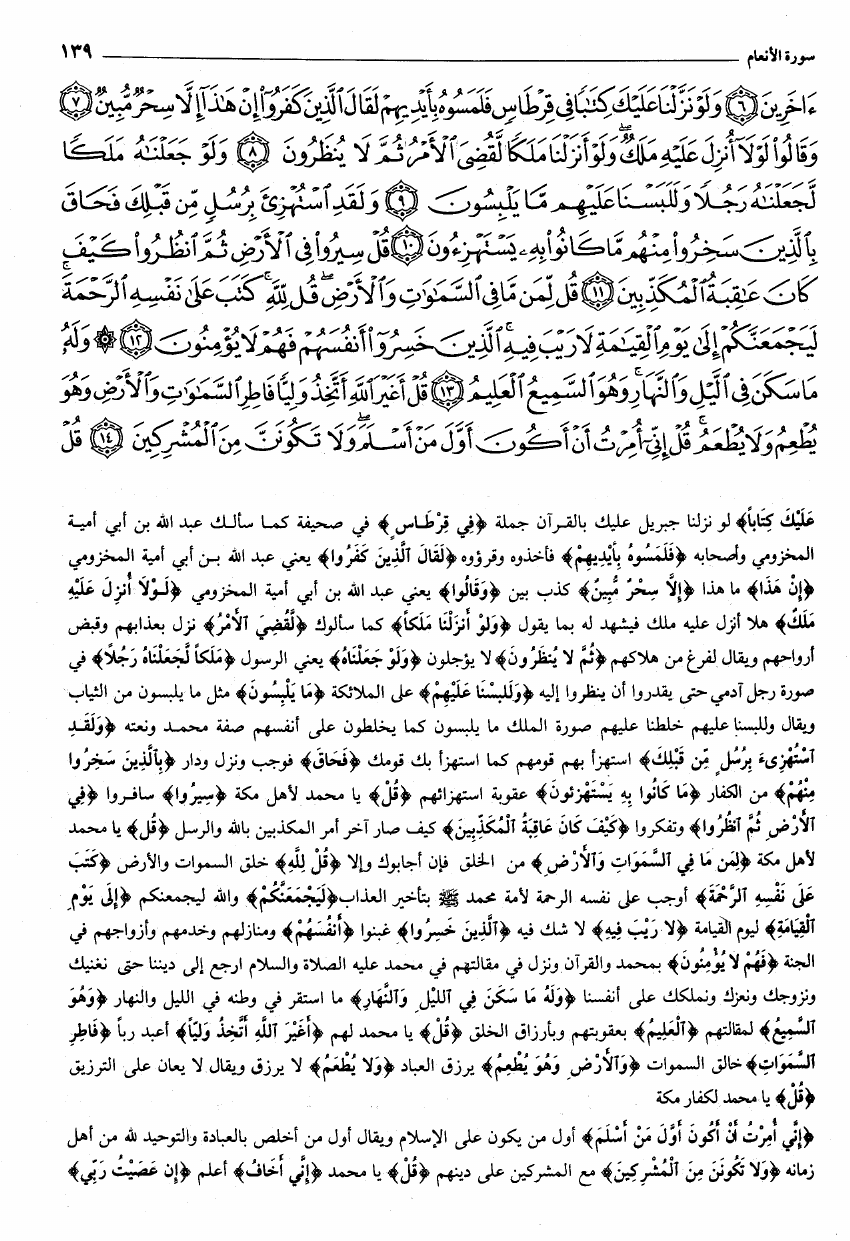 سورة الأنعام ١٣٩
ءَاخَرِينَ ﴿٦﴾ وَلَوْ نَزَّلْنَا عَلَيْكَ كِتَٰبًا فِى قِرْطَاسٍ فَلَمَسُوهُ بِأَيْدِيهِمْ لَقَالَ ٱلَّذِينَ كَفَرُوٓا۟ إِنْ هَٰذَآ إِلَّا سِحْرٌ مُّبِينٌ ﴿٧﴾
وَقَالُوا۟ لَوْلَآ أُنزِلَ عَلَيْهِ مَلَكٌ ۖ وَلَوْ أَنزَلْنَا مَلَكًا لَّقُضِىَ ٱلْأَمْرُ ثُمَّ لَا يُنظَرُونَ ﴿٨﴾ وَلَوْ جَعَلْنَٰهُ مَلَكًا
لَّجَعَلْنَٰهُ رَجُلًا وَلَلَبَسْنَا عَلَيْهِم مَّا يَلْبِسُونَ ﴿٩﴾ وَلَقَدِ ٱسْتُهْزِئَ بِرُسُلٍ مِّن قَبْلِكَ فَحَاقَ
بِٱلَّذِينَ سَخِرُوا۟ مِنْهُم مَّا كَانُوا۟ بِهِۦ يَسْتَهْزِءُونَ ﴿١٠﴾ قُلْ سِيرُوا۟ فِى ٱلْأَرْضِ ثُمَّ ٱنظُرُوا۟ كَيْفَ
كَانَ عَٰقِبَةُ ٱلْمُكَذِّبِينَ ﴿١١﴾ قُل لِّمَن مَّا فِى ٱلسَّمَٰوَٰتِ وَٱلْأَرْضِ ۖ قُل لِّلَّهِ ۚ كَتَبَ عَلَىٰ نَفْسِهِ ٱلرَّحْمَةَ ۚ
لَيَجْمَعَنَّكُمْ إِلَىٰ يَوْمِ ٱلْقِيَٰمَةِ لَا رَيْبَ فِيهِ ۚ ٱلَّذِينَ خَسِرُوٓا۟ أَنفُسَهُمْ فَهُمْ لَا يُؤْمِنُونَ ﴿١٢﴾ ۞ وَلَهُۥ
مَا سَكَنَ فِى ٱلَّيْلِ وَٱلنَّهَارِ ۚ وَهُوَ ٱلسَّمِيعُ ٱلْعَلِيمُ ﴿١٣﴾ قُلْ أَغَيْرَ ٱللَّهِ أَتَّخِذُ وَلِيًّا فَاطِرِ ٱلسَّمَٰوَٰتِ وَٱلْأَرْضِ وَهُوَ
يُطْعِمُ وَلَا يُطْعَمُ ۗ قُلْ إِنِّىٓ أُمِرْتُ أَنْ أَكُونَ أَوَّلَ مَنْ أَسْلَمَ ۖ وَلَا تَكُونَنَّ مِنَ ٱلْمُشْرِكِينَ ﴿١٤﴾ قُلْ
عَلَيْكَ كِتَاباً﴾ لو نزلنا جبريل عليك بالقرآن جملة ﴿فِي قِرْطَاسٍ﴾ في صحيفة كما سألك عبد الله بن أبي أمية
المخزومي وأصحابه ﴿فَلَمَسُوهُ بِأَيْدِيهِمْ﴾ فأخذوه وقرؤوه ﴿لَقَالَ ٱلَّذِينَ كَفَرُوا﴾ يعني عبد الله بن أبي أمية المخزومي
﴿إِنْ هَذَا﴾ ما هذا ﴿إِلَّا سِحْرٌ مُّبِينٌ﴾ كذب بين ﴿وَقَالُوا﴾ يعني عبد الله بن أبي أمية المخزومي ﴿لَوْلاَ أُنزِلَ عَلَيْهِ
مَلَكٌ﴾ هلا أنزل عليه ملك فيشهد له بما يقول ﴿وَلَوْ أَنزَلْنَا مَلَكاً﴾ كما سألوك ﴿لَّقُضِيَ ٱلأَمْرُ﴾ نزل بعذابهم وقبض
أرواحهم ويقال لفرغ من هلاكهم ﴿ثُمَّ لاَ يُنظَرُونَ﴾ لا يؤجلون ﴿وَلَوْ جَعَلْنَاهُ﴾ يعني الرسول ﴿مَلَكاً لَّجَعَلْنَاهُ رَجُلاً﴾ في
صورة رجل آدمي حتى يقدروا أن ينظروا إليه ﴿وَلَلَبَسْنَا عَلَيْهِمْ﴾ على الملائكة ﴿مَا يَلْبِسُونَ﴾ مثل ما يلبسون من الثياب
ويقال وللبسنا عليهم خلطنا عليهم صورة الملك ما يلبسون كما يخلطون على أنفسهم صفة محمد ونعته ﴿وَلَقَدِ
ٱسْتُهْزِىءَ بِرُسُلٍ مِّن قَبْلِكَ﴾ استهزأ بهم قومهم كما استهزأ بك قومك ﴿فَحَاقَ﴾ فوجب ونزل ودار ﴿بِٱلَّذِينَ سَخِرُوا
مِنْهُمْ﴾ من الكفار ﴿مَا كَانُوا بِهِ يَسْتَهْزِئونَ﴾ عقوبة استهزائهم ﴿قُلْ﴾ يا محمد لأهل مكة ﴿سِيرُوا﴾ سافروا ﴿فِي
ٱلأَرْضِ ثُمَّ ٱنظُرُوا﴾ وتفكروا ﴿كَيْفَ كَانَ عَاقِبَةُ ٱلْمُكَذِّبِينَ﴾ كيف صار آخر أمر المكذبين بالله والرسل ﴿قُل﴾ يا محمد
لأهل مكة ﴿لِمَن مَا فِي ٱلسَّمَوَاتِ وَٱلأَرْضِ﴾ من الخلق فإن أجابوك وإلا ﴿قُلْ لِلَّهِ﴾ خلق السموات والأرض ﴿كَتَبَ
عَلَى نَفْسِهِ ٱلرَّحْمَةَ﴾ أوجب على نفسه الرحمة لأمة محمد ﷺ بتأخير العذاب ﴿لَيَجْمَعَنَّكُمْ﴾ والله ليجمعنكم ﴿إِلَى يَوْمِ
ٱلْقِيَامَةِ﴾ ليوم القيامة ﴿لا رَيْبَ فِيهِ﴾ لا شك فيه ﴿ٱلَّذِينَ خَسِرُوا﴾ غبنوا ﴿أَنفُسَهُمْ﴾ ومنازلهم وخدمهم وأزواجهم في
الجنة ﴿فَهُمْ لاَ يُؤْمِنُونَ﴾ بمحمد والقرآن ونزل في مقالتهم في محمد عليه الصلاة والسلام ارجع إلى ديننا حتى نغنيك
ونزوجك ونعزك ونملكك على أنفسنا ﴿وَلَهُ مَا سَكَنَ فِي ٱلليْلِ وَٱلنَّهَارِ﴾ ما استقر في وطنه في الليل والنهار ﴿وَهُوَ
ٱلسَّمِيعُ﴾ لمقالتهم ﴿ٱلْعَلِيمُ﴾ بعقوبتهم وبأرزاق الخلق ﴿قُلْ﴾ يا محمد لهم ﴿أَغَيْرَ ٱللَّهِ أَتَّخِذُ وَلِيّاً﴾ أعبد رباً ﴿فَاطِرِ
ٱلسَّمَوَاتِ﴾ خالق السموات ﴿وَٱلأَرْضِ وَهُوَ يُطْعِمُ﴾ يرزق العباد ﴿وَلاَ يُطْعَمُ﴾ لا يرزق ويقال لا يعان على الترزيق
﴿قُلْ﴾ يا محمد لكفار مكة
﴿إِنِّي أُمِرْتُ أَنْ أَكُونَ أَوَّلَ مَنْ أَسْلَمَ﴾ أول من يكون على الإسلام ويقال أول من أخلص بالعبادة والتوحيد لله من أهل
زمانه ﴿وَلاَ تَكُونَنَّ مِنَ ٱلْمُشْرِكِينَ﴾ مع المشركين على دينهم ﴿قُلْ﴾ يا محمد ﴿إِنِّي أَخَافُ﴾ أعلم ﴿إِن عَصَيْتُ رَبِّي﴾